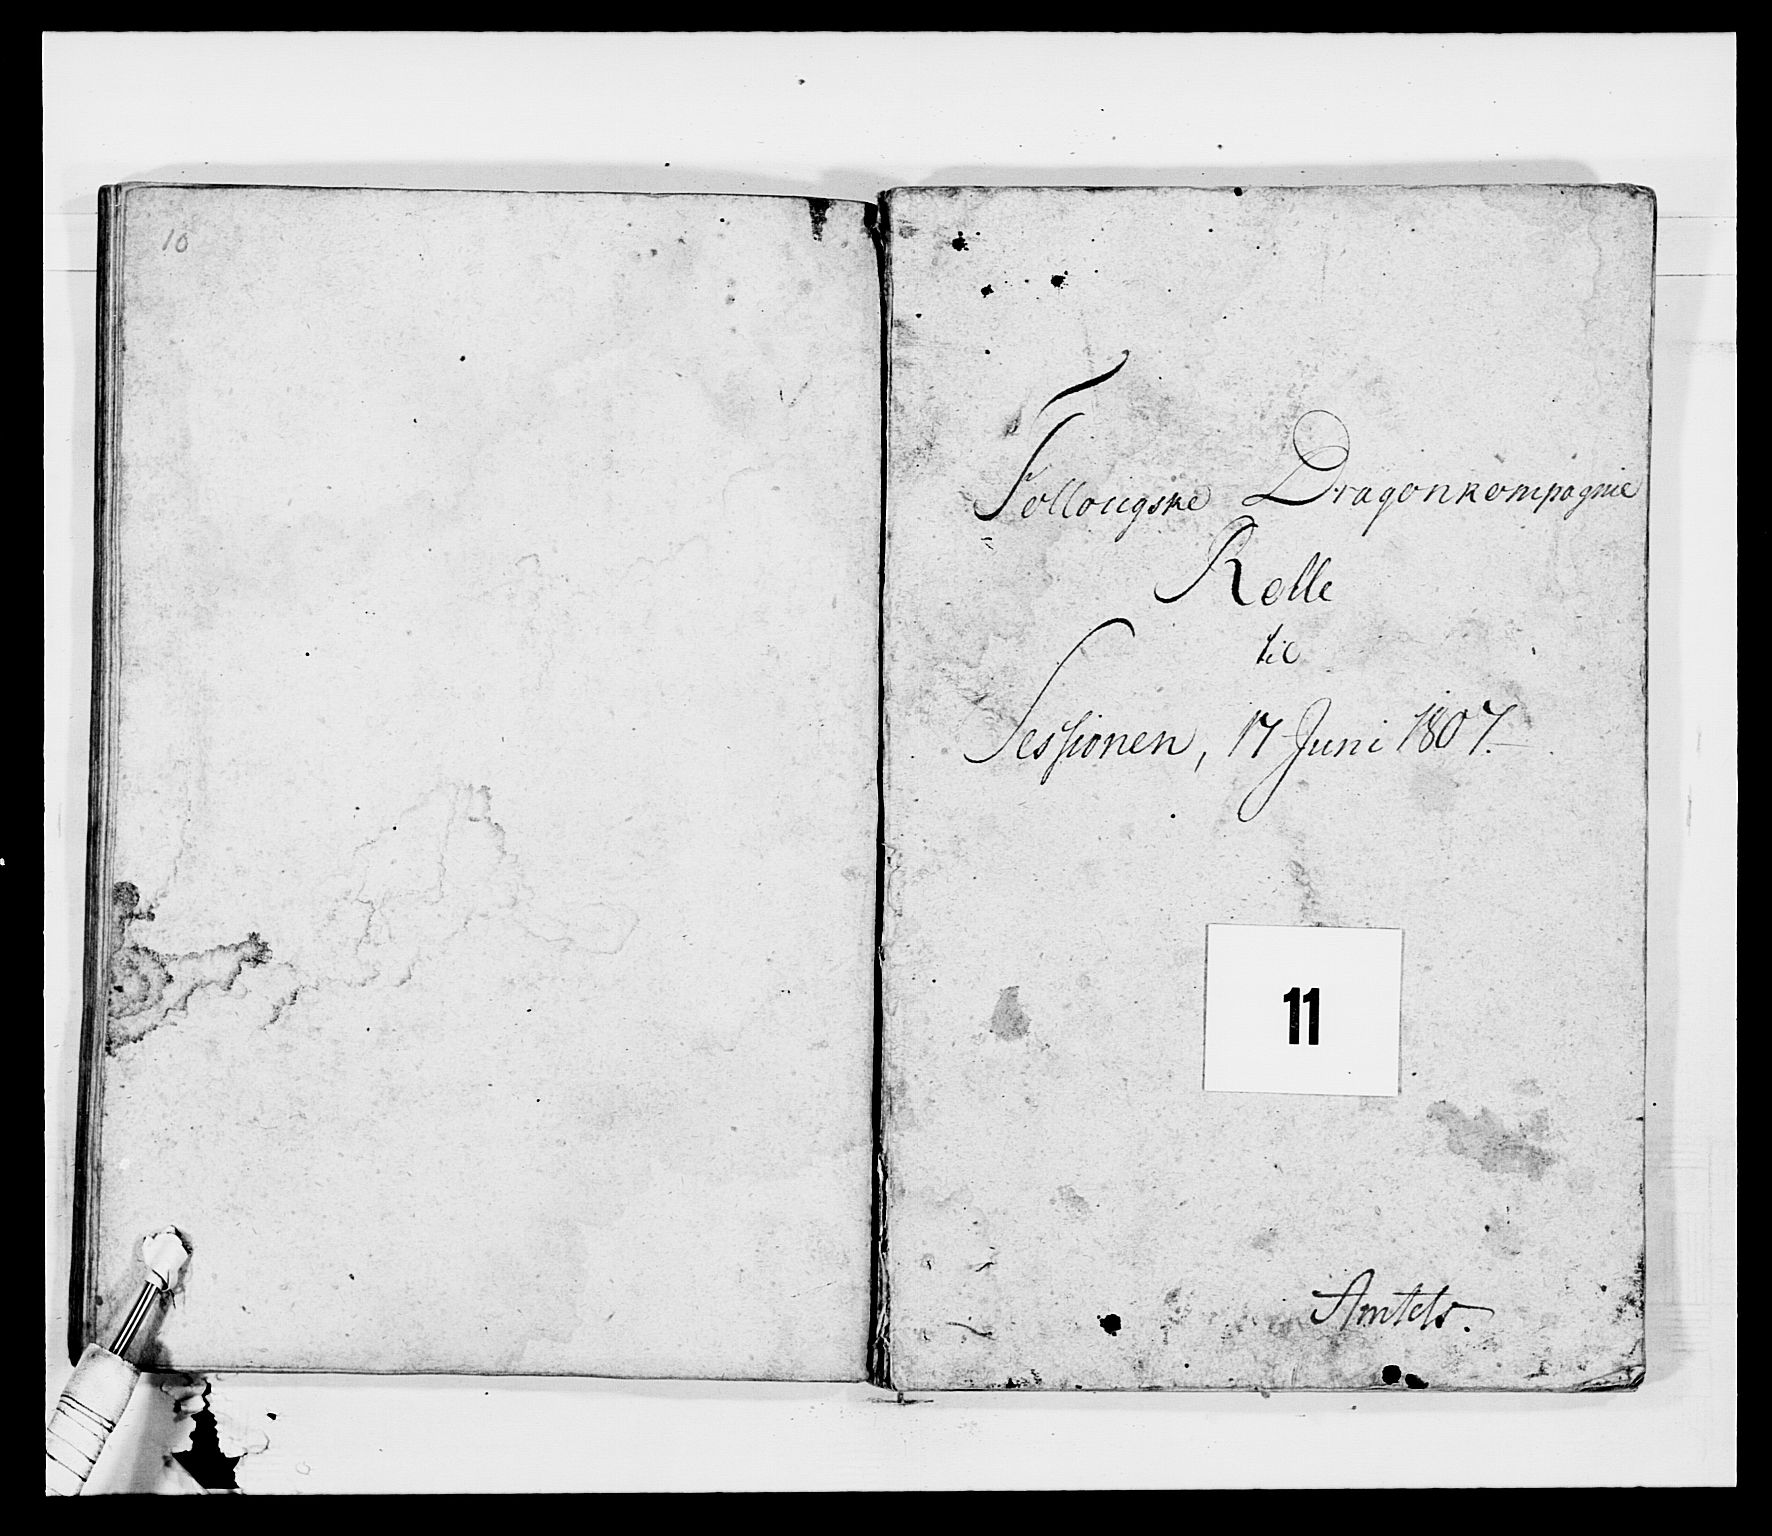 10
Follougske Dragonkompagnie
Rolle
til
Sessionen, 17 Juni 1807.
11
Amtets.